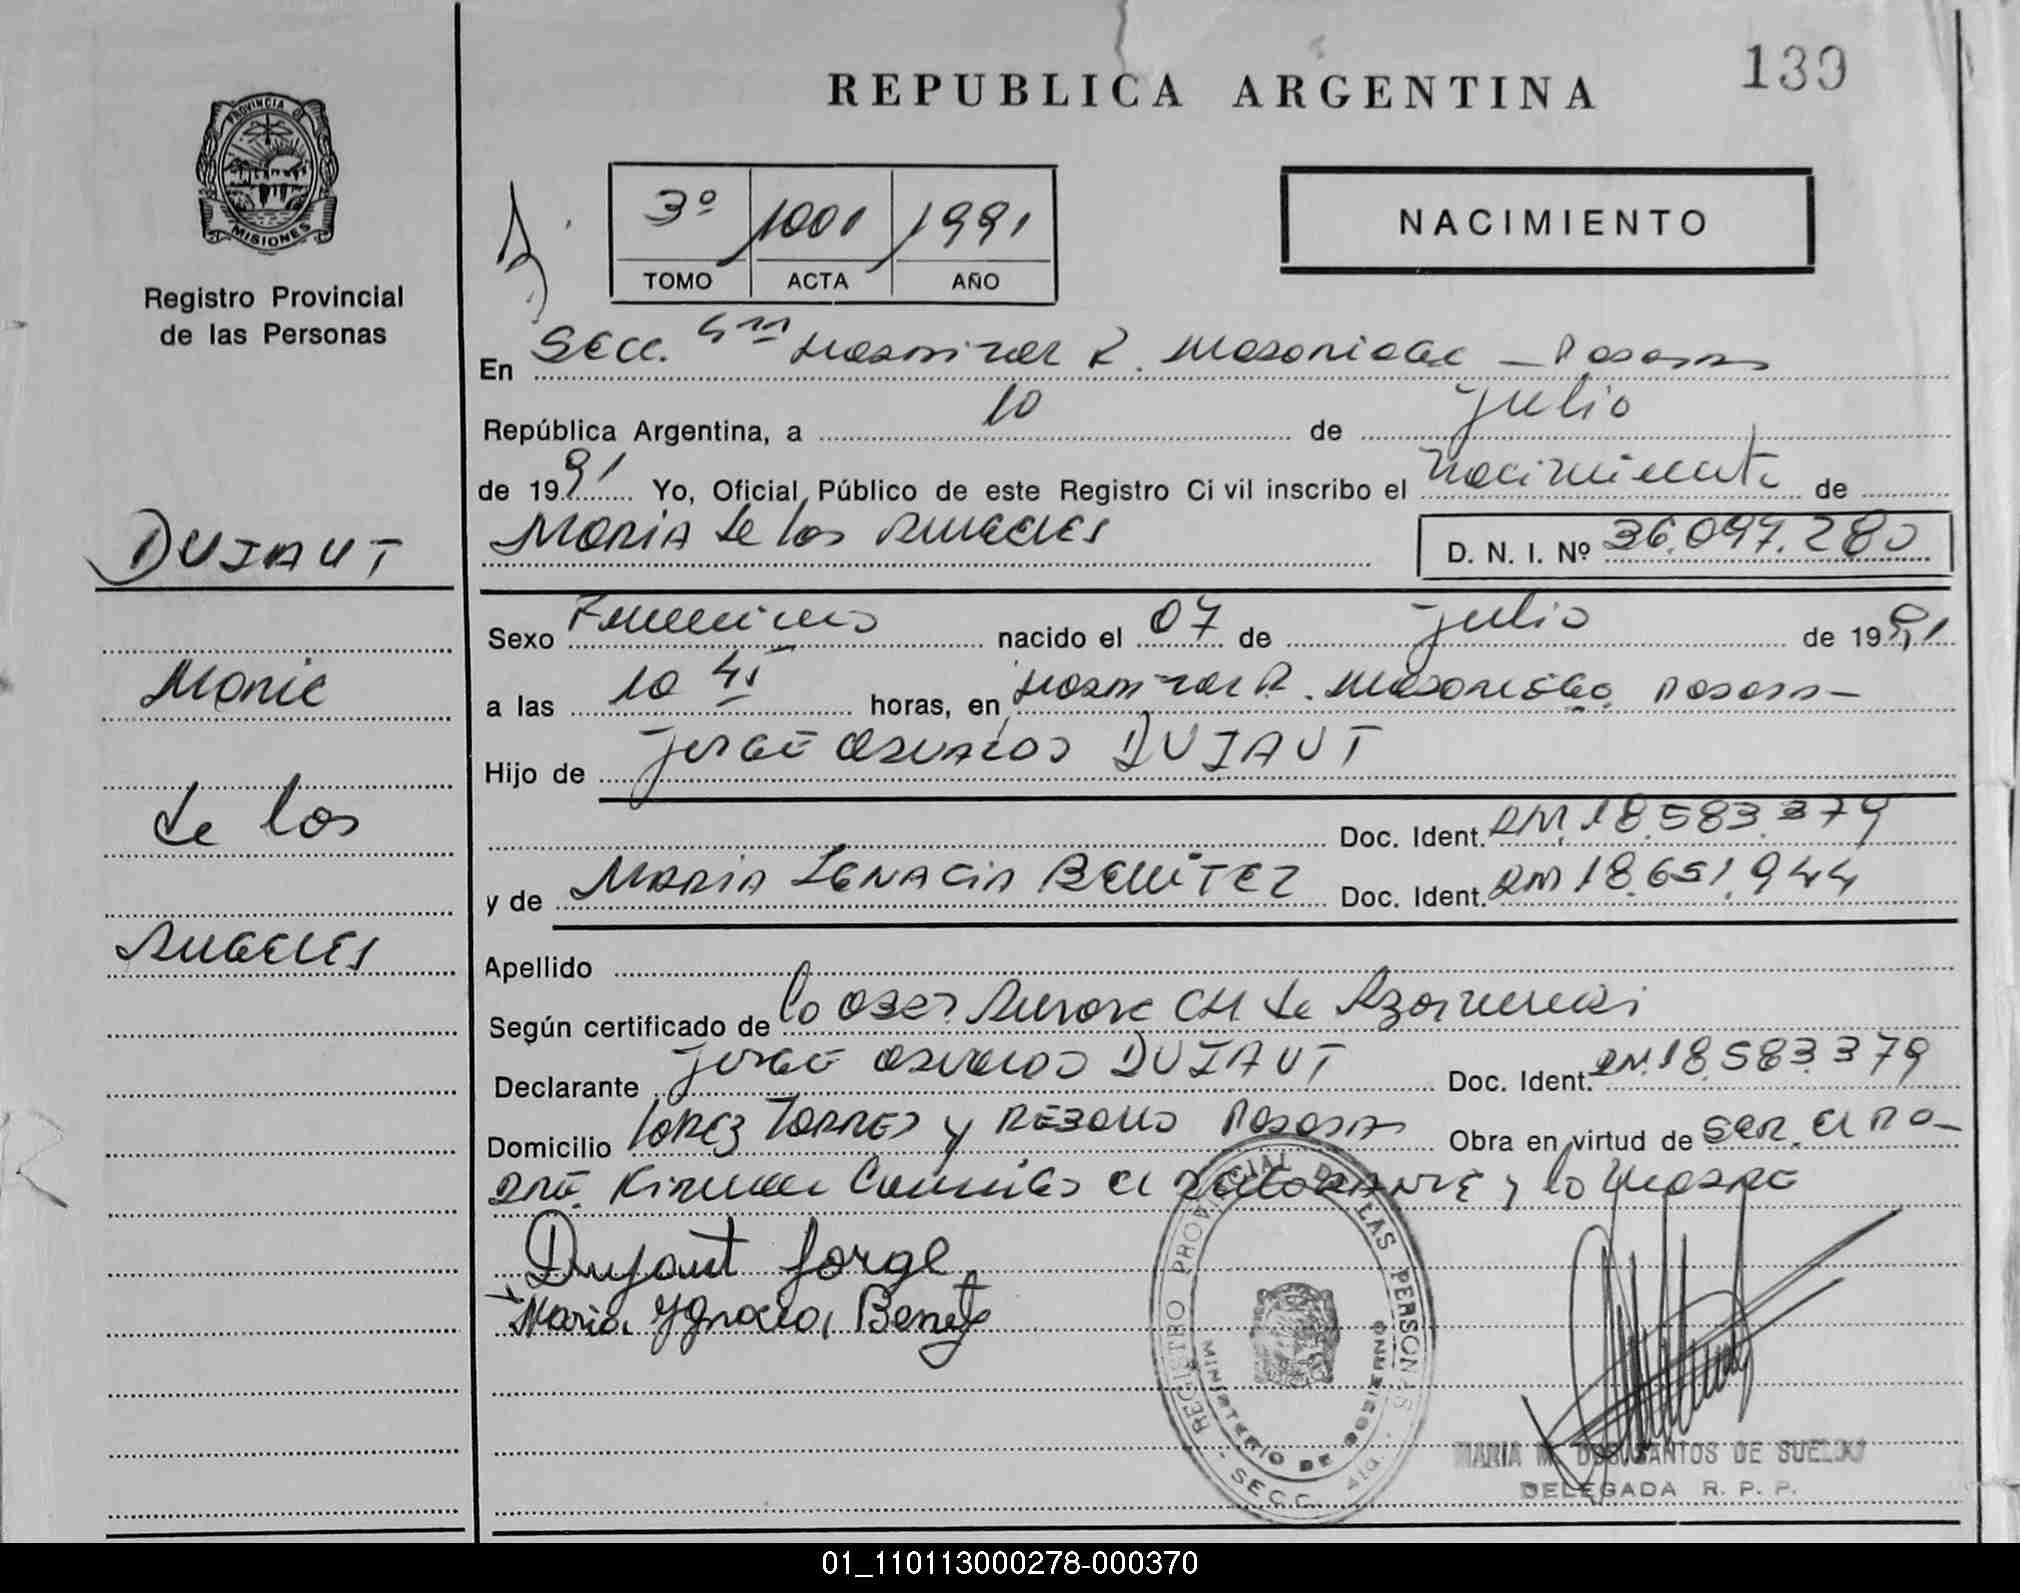 REPUBLICA ARGENTINA
139
PROVINCIA DE
MISIONES
Registro Provincial
de las Personas
3º 1001 1991
TOMO ACTA AÑO
NACIMIENTO
En Secc. R. Madariaga - Posadas
República Argentina, a 10 de Julio
de 1991 Yo, Oficial Público de este Registro Civil inscribo el nacimiento de
DUJAUT
MARIA de los ANGELES
D. N. I. Nº 36.097.280
Sexo Femenino nacido el 07 de Julio de 1991
Maria
a las 10 45 horas, en R. Madariaga Posadas -
Hijo de Jorge Osvaldo DUJAUT
de los
Doc. Ident. DNI. 18.583.379
y de MARIA IGNACIA BENITEZ Doc. Ident. DNI 18.651.944
Angeles
Apellido
Según certificado de la Obst. Aurora CH de
Declarante Jorge Osvaldo DUJAUT Doc. Ident. DNI. 18.583.379
Domicilio LOPEZ TORRES y Posadas Obra en virtud de ser el pa-
dre Firman el declarante y la madre
Dujaut Jorge
Maria Ygnacia, Benitez
REGISTRO PROVINCIAL DE LAS PERSONAS
MINISTERIO DE GOBIERNO
- SECC.
MARIA M. DOS SANTOS DE
DELEGADA R. P. P.
01_110113000278-000370